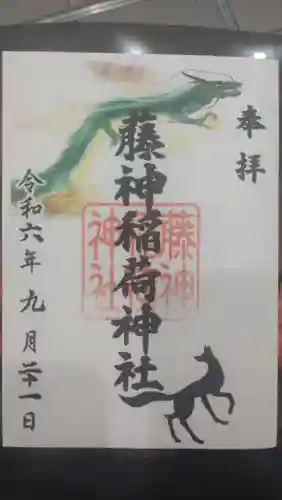 奉拝
藤神稲荷神社
藤神
神社
令和六年九月二十一日